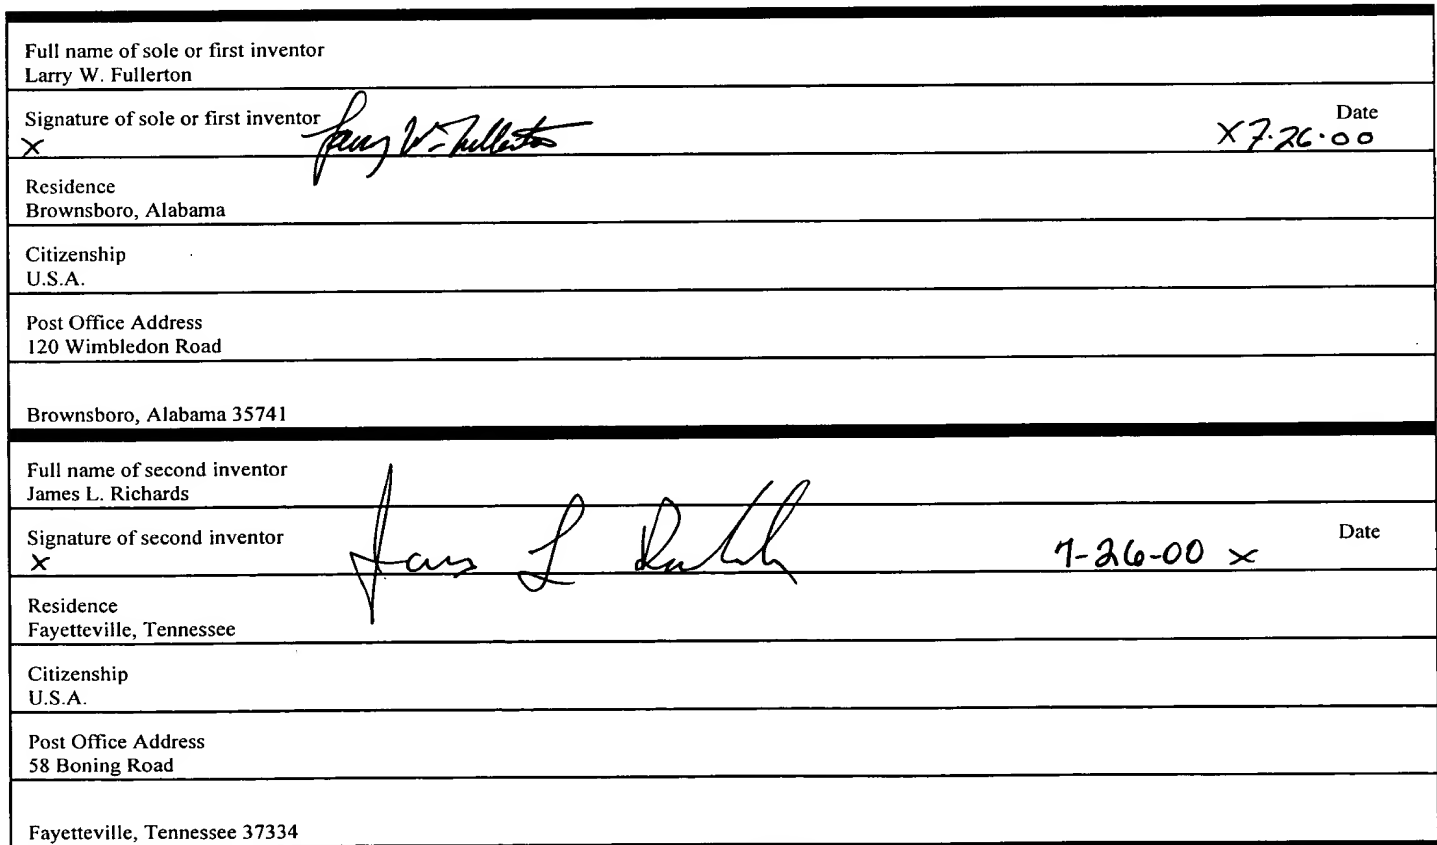 Full name of sole or first inventor
Larry W. Fullerton
Signature of sole or first inventor
Date
x Larry W. Fullerton x 7.26.00
Residence
Brownsboro, Alabama
Citizenship
U.S.A.
Post Office Address
120 Wimbledon Road
Brownsboro, Alabama 35741
Full name of second inventor
James L. Richards
Signature of second inventor
Date
x James L Richards 7-26-00 x
Residence
Fayetteville, Tennessee
Citizenship
U.S.A.
Post Office Address
58 Boning Road
Fayetteville, Tennessee 37334